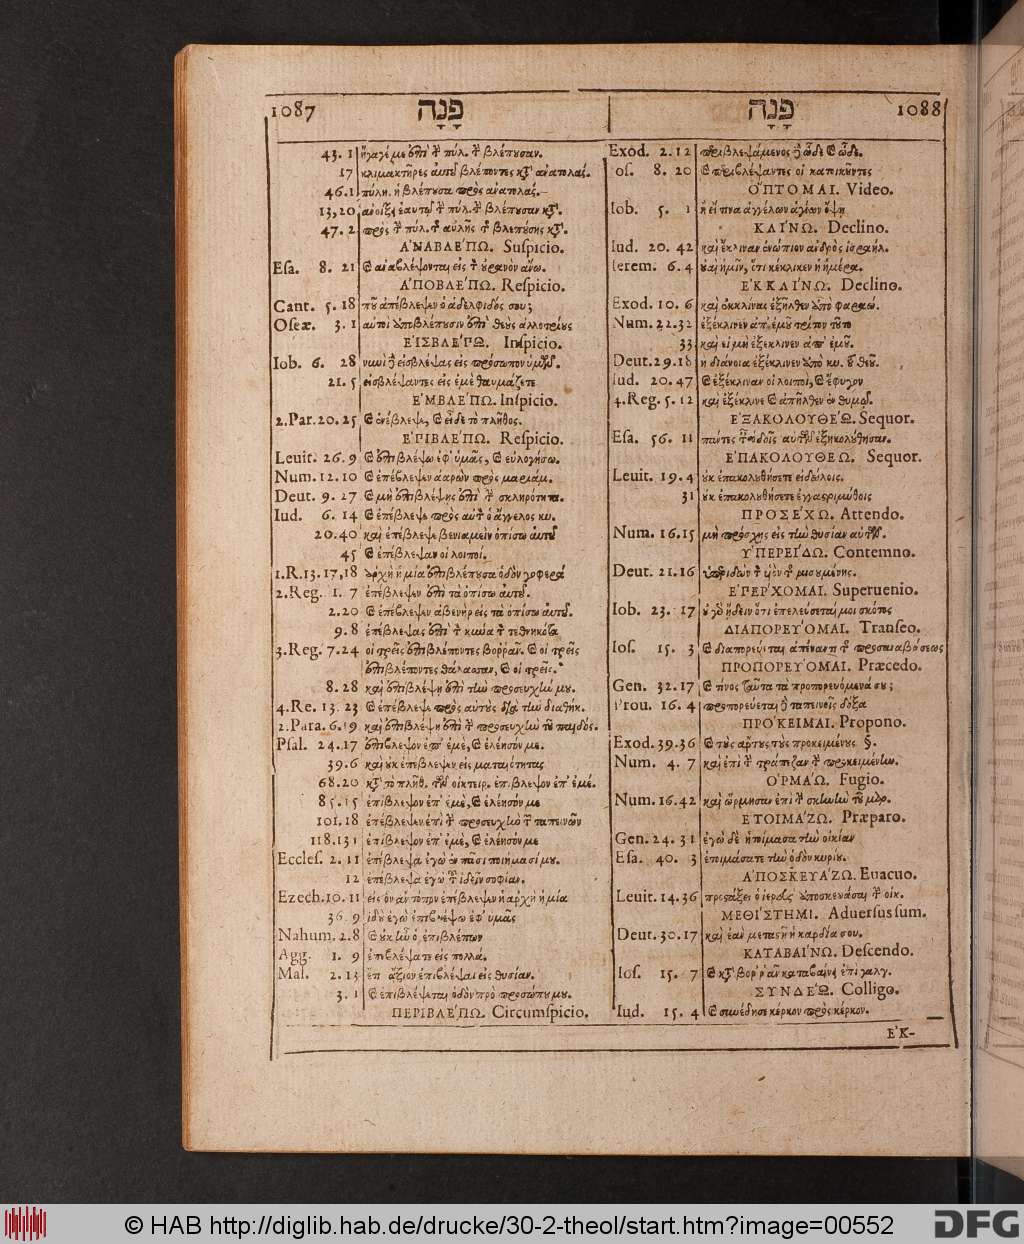 1087 פָּנָה
43. 1 ἤγαγέ με ἐπὶ τ̀ πύλ. τ̀ βλέπουσαν.
17 κλιμακτῆρες αὐτοῦ βλέποντες κτ̓ ἀνατολάς.
46.1 πύλη. ἡ βλέπουσα πρὸς ἀνατολάς.
13,20 ἀνοίξει ἑαυτῷ τ̀ πύλ. τ̀ βλέπουσαν κτ̓.
47. 2 πρὸς τ̀ πύλ. τ̃ αὐλῆς τ̃ βλεπούσης κτ̓.
ἈΝΑΒΛΈΠΩ. Suſpicio.
Eſa. 8. 21 Ϗ ἀναβλέψονται εἰς τ̀ οὐρανὸν ἄνω.
ἈΠΟΒΛΈΠΩ. Reſpicio.
Cant. 5. 18 ποῦ ἀπέβλεψεν ὁ ἀδελφιδός σου;
Oſeæ. 3. 1 αὐτοὶ ἀποβλέπουσιν ἐπὶ θεοὺς ἀλλοτρίους
ἘΙΣΒΛΈΠΩ. Inſpicio.
Iob. 6. 28 νυνὶ δὲ εἰσβλέψας εἰς πρόσωπον ὑμῶν.
21. 5 εἰσβλέψαντες εἰς ἐμὲ θαυμάζετε
ἘΜΒΛΈΠΩ. Inſpicio.
2.Par. 20. 25 Ϗ ἐνέβλεψε, Ϗ εἶδε τὸ πλῆθος.
ἘΠΙΒΛΈΠΩ. Reſpicio.
Leuit. 26. 9 Ϗ ἐπιβλέψω ἐφ' ὑμᾶς, Ϗ εὐλογήσω.
Num. 12. 10 Ϗ ἐπέβλεψεν ἀαρὼν πρὸς μαριάμ.
Deut. 9. 27 Ϗ μὴ ἐπιβλέψῃς ἐπὶ τ̀ σκληρότητα.
Iud. 6. 14 Ϗ ἐπέβλεψε πρὸς αὐτ̀ ὁ ἄγγελος κυ.
20.40 καὶ ἐπέβλεψε βενιαμεὶν ὀπίσω αὐτοῦ
45 Ϗ ἐπέβλεψαν οἱ λοιποί.
1.R.13. 17,18 ἀρχὴ ἡ μία ἐπιβλέπουσα ὁδὸν γοφερά
2.Reg. 1. 7 ἐπέβλεψεν ἐπὶ τὰ ὀπίσω αὐτοῦ.
2.20 Ϗ ἐπέβλεψεν ἀβενὴρ εἰς τὰ ὀπίσω αὐτοῦ.
9. 8 ἐπέβλεψας ἐπὶ τ̀ κύνα τ̀ τεθνηκότα
3.Reg. 7.24 οἱ τρεῖς ἐπιβλέποντες βοῤῥᾶν. Ϗ οἱ τρεῖς
ἐπιβλέποντες θάλασσαν, Ϗ οἱ τρεῖς.
8. 28 καὶ ἐπιβλέψῃ ἐπὶ τὴν προσευχήν μου.
4.Re. 13. 23 Ϗ ἐπέβλεψε πρὸς αὐτοὺς διὰ τὴν διαθήκ.
2.Para. 6. 19 καὶ ἐπιβλέψῃ ἐπὶ τ̀ προσευχὴν τοῦ παιδός.
Pſal. 24. 17 ἐπίβλεψον ἐπ' ἐμὲ, Ϗ ἐλέησόν με.
39. 6 καὶ οὐκ ἐπέβλεψεν εἰς ματαιότητας
68.20 κτ̓ τὸ πλῆθ. τῶν οἰκτειρ. ἐπίβλεψον ἐπ' ἐμέ.
85. 15 ἐπίβλεψον ἐπ' ἐμὲ, Ϗ ἐλέησόν με
101. 18 ἐπέβλεψεν ἐπὶ τ̀ προσευχὴν τ̃ ταπεινῶν
118.131 ἐπίβλεψον ἐπ' ἐμὲ, Ϗ ἐλέησόν με
Eccleſ. 2. 11 ἐπέβλεψα ἐγὼ ἐν πᾶσι ποιήμασί μου.
12 ἐπέβλεψα ἐγὼ τ̃ ἰδεῖν σοφίαν.
Ezech. 10. 11 εἰς ὃν ἂν τόπον ἐπέβλεψεν ἡ ἀρχὴ ἡ μία
36. 9 ἰδοὺ ἐγὼ ἐπιβλέψω ἐφ' ὑμᾶς
Nahum. 2. 8 Ϗ οὐκ ἦν ὁ ἐπιβλέπων
Agg. 1. 9 ἐπεβλέψατε εἰς πολλά.
Mal. 2. 13 ἔτι ἄξιον ἐπιβλέψαι εἰς θυσίαν.
3. 1 Ϗ ἐπιβλέψεται ὁδὸν πρὸ προσώπου μου.
ΠΕΡΙΒΛΈΠΩ. Circumſpicio.
פָּנָה 1088
Exod. 2. 12 περιβλεψάμενος δὲ ὧδε Ϗ ὧδε.
Ioſ. 8. 20 Ϗ περιβλέψαντες οἱ κατοικοῦντες
ὈΠΤΟΜΑΙ. Video.
Iob. 5. 1 ἢ εἴ τινα ἀγγέλων ἁγίων ὄψῃ
ΚΛΊΝΩ. Declino.
Iud. 20. 42 καὶ ἔκλιναν ἐνώπιον ἀνδρὸς ἰσραήλ.
Ierem. 6. 4 οὐαὶ ἡμῖν, ὅτι κέκλικεν ἡ ἡμέρα.
ἘΚΚΛΊΝΩ. Declino.
Exod. 10. 6 καὶ ἐκκλίνας ἐξῆλθεν ἀπὸ φαραώ.
Num. 22. 32 ἐξέκλινεν ἀπ' ἐμοῦ τρίτον τοῦτο
33 καὶ εἰ μὴ ἐξέκλινεν ἀπ' ἐμοῦ.
Deut. 29. 18 ἡ διάνοια ἐξέκλινεν ἀπὸ κυ. τ̃ θεοῦ.
Iud. 20. 47 Ϗ ἐξέκλιναν οἱ λοιποὶ, Ϗ ἔφυγον
4.Reg. 5. 12 καὶ ἐξέκλινε Ϗ ἀπῆλθεν ἐν θυμῷ.
ἘΞΑΚΟΛΟΥΘΈΩ. Sequor.
Eſa. 56. 11 πάντες τ̃ ὁδοῖς αὐτῶν ἐξηκολούθησαν.
ἘΠΑΚΟΛΟΥΘΕΩ. Sequor.
Leuit. 19. 4 οὐκ ἐπακολουθήσετε εἰδώλοις.
31 οὐκ ἐπακολουθήσετε ἐγγαστριμύθοις
ΠΡΟΣΈΧΩ. Attendo.
Num. 16. 15 μὴ πρόσχῃς εἰς τὴν θυσίαν αὐτῶν.
ὙΠΕΡΕΊΔΩ. Contemno.
Deut. 21. 16 ὑπεριδὼν τ̀ υἱὸν τ̃ μισουμένης.
ἘΠΕΡΧΟΜΑΙ. Superuenio.
Iob. 23. 17 οὐ γὸ ᾔδειν ὅτι ἐπελεύσεταί μοι σκότος
ΔΙΑΠΟΡΕΎΟΜΑΙ. Tranſeo.
Ioſ. 15. 3 Ϗ διαπορεύεται ἀπέναντι τ̃ προσαναβάσεως
ΠΡΟΠΟΡΕΎΟΜΑΙ. Præcedo.
Gen. 32. 17 Ϗ τίνος ταῦτα τὰ προπορευόμενά σου;
Prou. 16. 4 προπορεύεται δὲ ταπεινοῖς δόξα
ΠΡΌΚΕΙΜΑΙ. Propono.
Exod. 39. 36 Ϗ τοὺς ἄρτους τοὺς προκειμένους §.
Num. 4. 7 καὶ ἐπὶ τ̀ τράπεζαν τ̀ προκειμένην.
ὉΡΜΆΩ. Fugio.
Num. 16. 42 καὶ ὥρμησαν ἐπὶ τ̀ σκηνὴν τοῦ μαρ.
ΕΤΟΙΜΆΖΩ. Præparo.
Gen. 24. 31 ἐγὼ δὲ ἡτοίμασα τὴν οἰκίαν
Eſa. 40. 3 ἑτοιμάσατε τὴν ὁδὸν κυρίου.
ἈΠΟΣΚΕΥΆΖΩ. Euacuo.
Leuit. 14. 36 προστάξει ὁ ἱερεὺς ἀποσκευάσαι τ̀ οἰκ.
ΜΕΘΊΣΤΗΜΙ. Aduerſus ſum.
Deut. 30. 17 καὶ ἐὰν μεταστῇ ἡ καρδία σου.
ΚΑΤΑΒΑΊΝΩ. Deſcendo.
Ioſ. 15. 7 Ϗ κτ̓ βοῤῥᾶν καταβαίνει ἐπὶ γαλγ.
ΣΥΝΔΈΩ. Colligo.
Iud. 15. 4 Ϗ συνέδησε κέρκον πρὸς κέρκον.
ἘΚ-
© HAB http://diglib.hab.de/drucke/30-2-theol/start.htm?image=00552
DFG